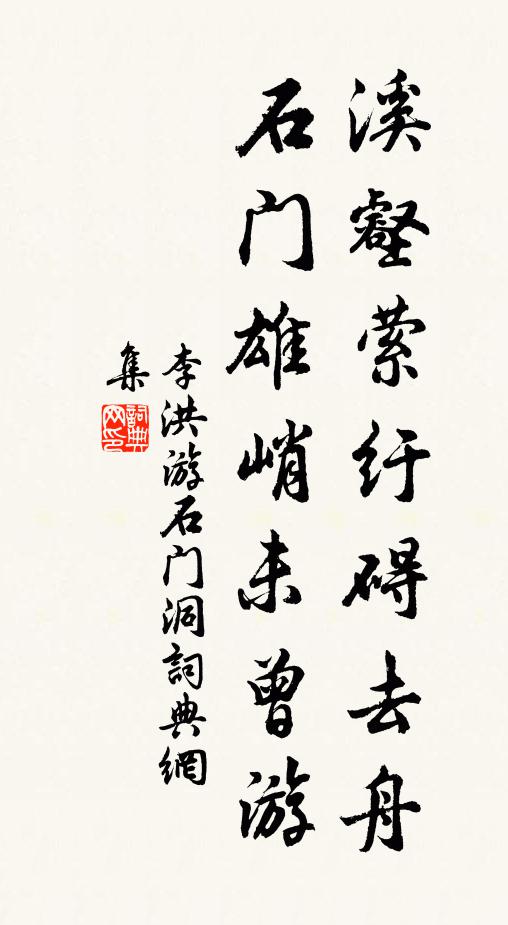 溪壑萦纡碍去舟
石门雄峭未曾游
李洪游石门洞詞典網
集
詞典
网印